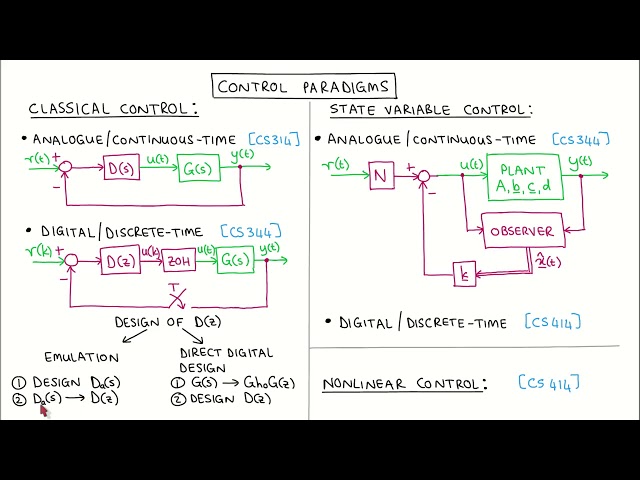 CONTROL PARADIGMS
CLASSICAL CONTROL:
• ANALOGUE/CONTINUOUS-TIME [CS314]
r(t) + − D(s) u(t) G(s) y(t)
• DIGITAL/DISCRETE-TIME [CS344]
r(k) + − D(z) u(k) ZOH u(t) G(s) y(t)
T
DESIGN OF D(z)
EMULATION
① DESIGN Da(s)
② Da(s) → D(z)
DIRECT DIGITAL
DESIGN
① G(s) → Gh₀G(z)
② DESIGN D(z)
STATE VARIABLE CONTROL:
• ANALOGUE/CONTINUOUS-TIME [CS344]
r(t) N + − u(t) PLANT y(t)
A, b, c, d
OBSERVER
x̂(t)
k
• DIGITAL/DISCRETE-TIME [CS414]
NONLINEAR CONTROL: [CS414]